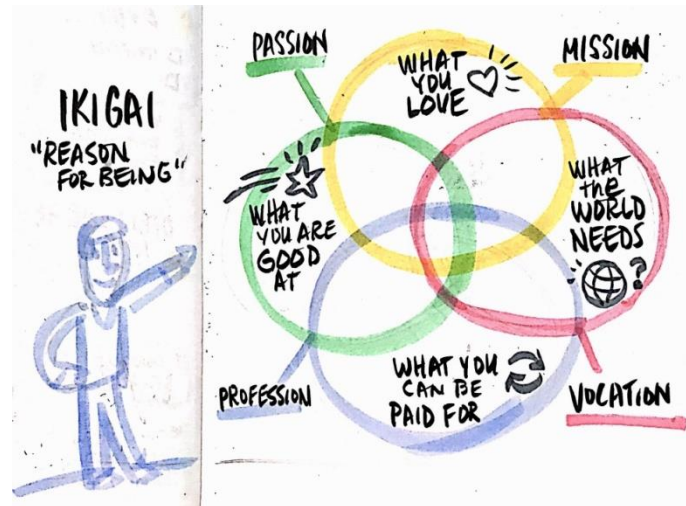 IKIGAI
"REASON
FOR BEING"
PASSION
MISSION
WHAT
YOU
LOVE
WHAT
YOU ARE
GOOD
AT
WHAT
the
WORLD
NEEDS
?
PROFESSION
WHAT YOU
CAN BE
PAID FOR
VOCATION